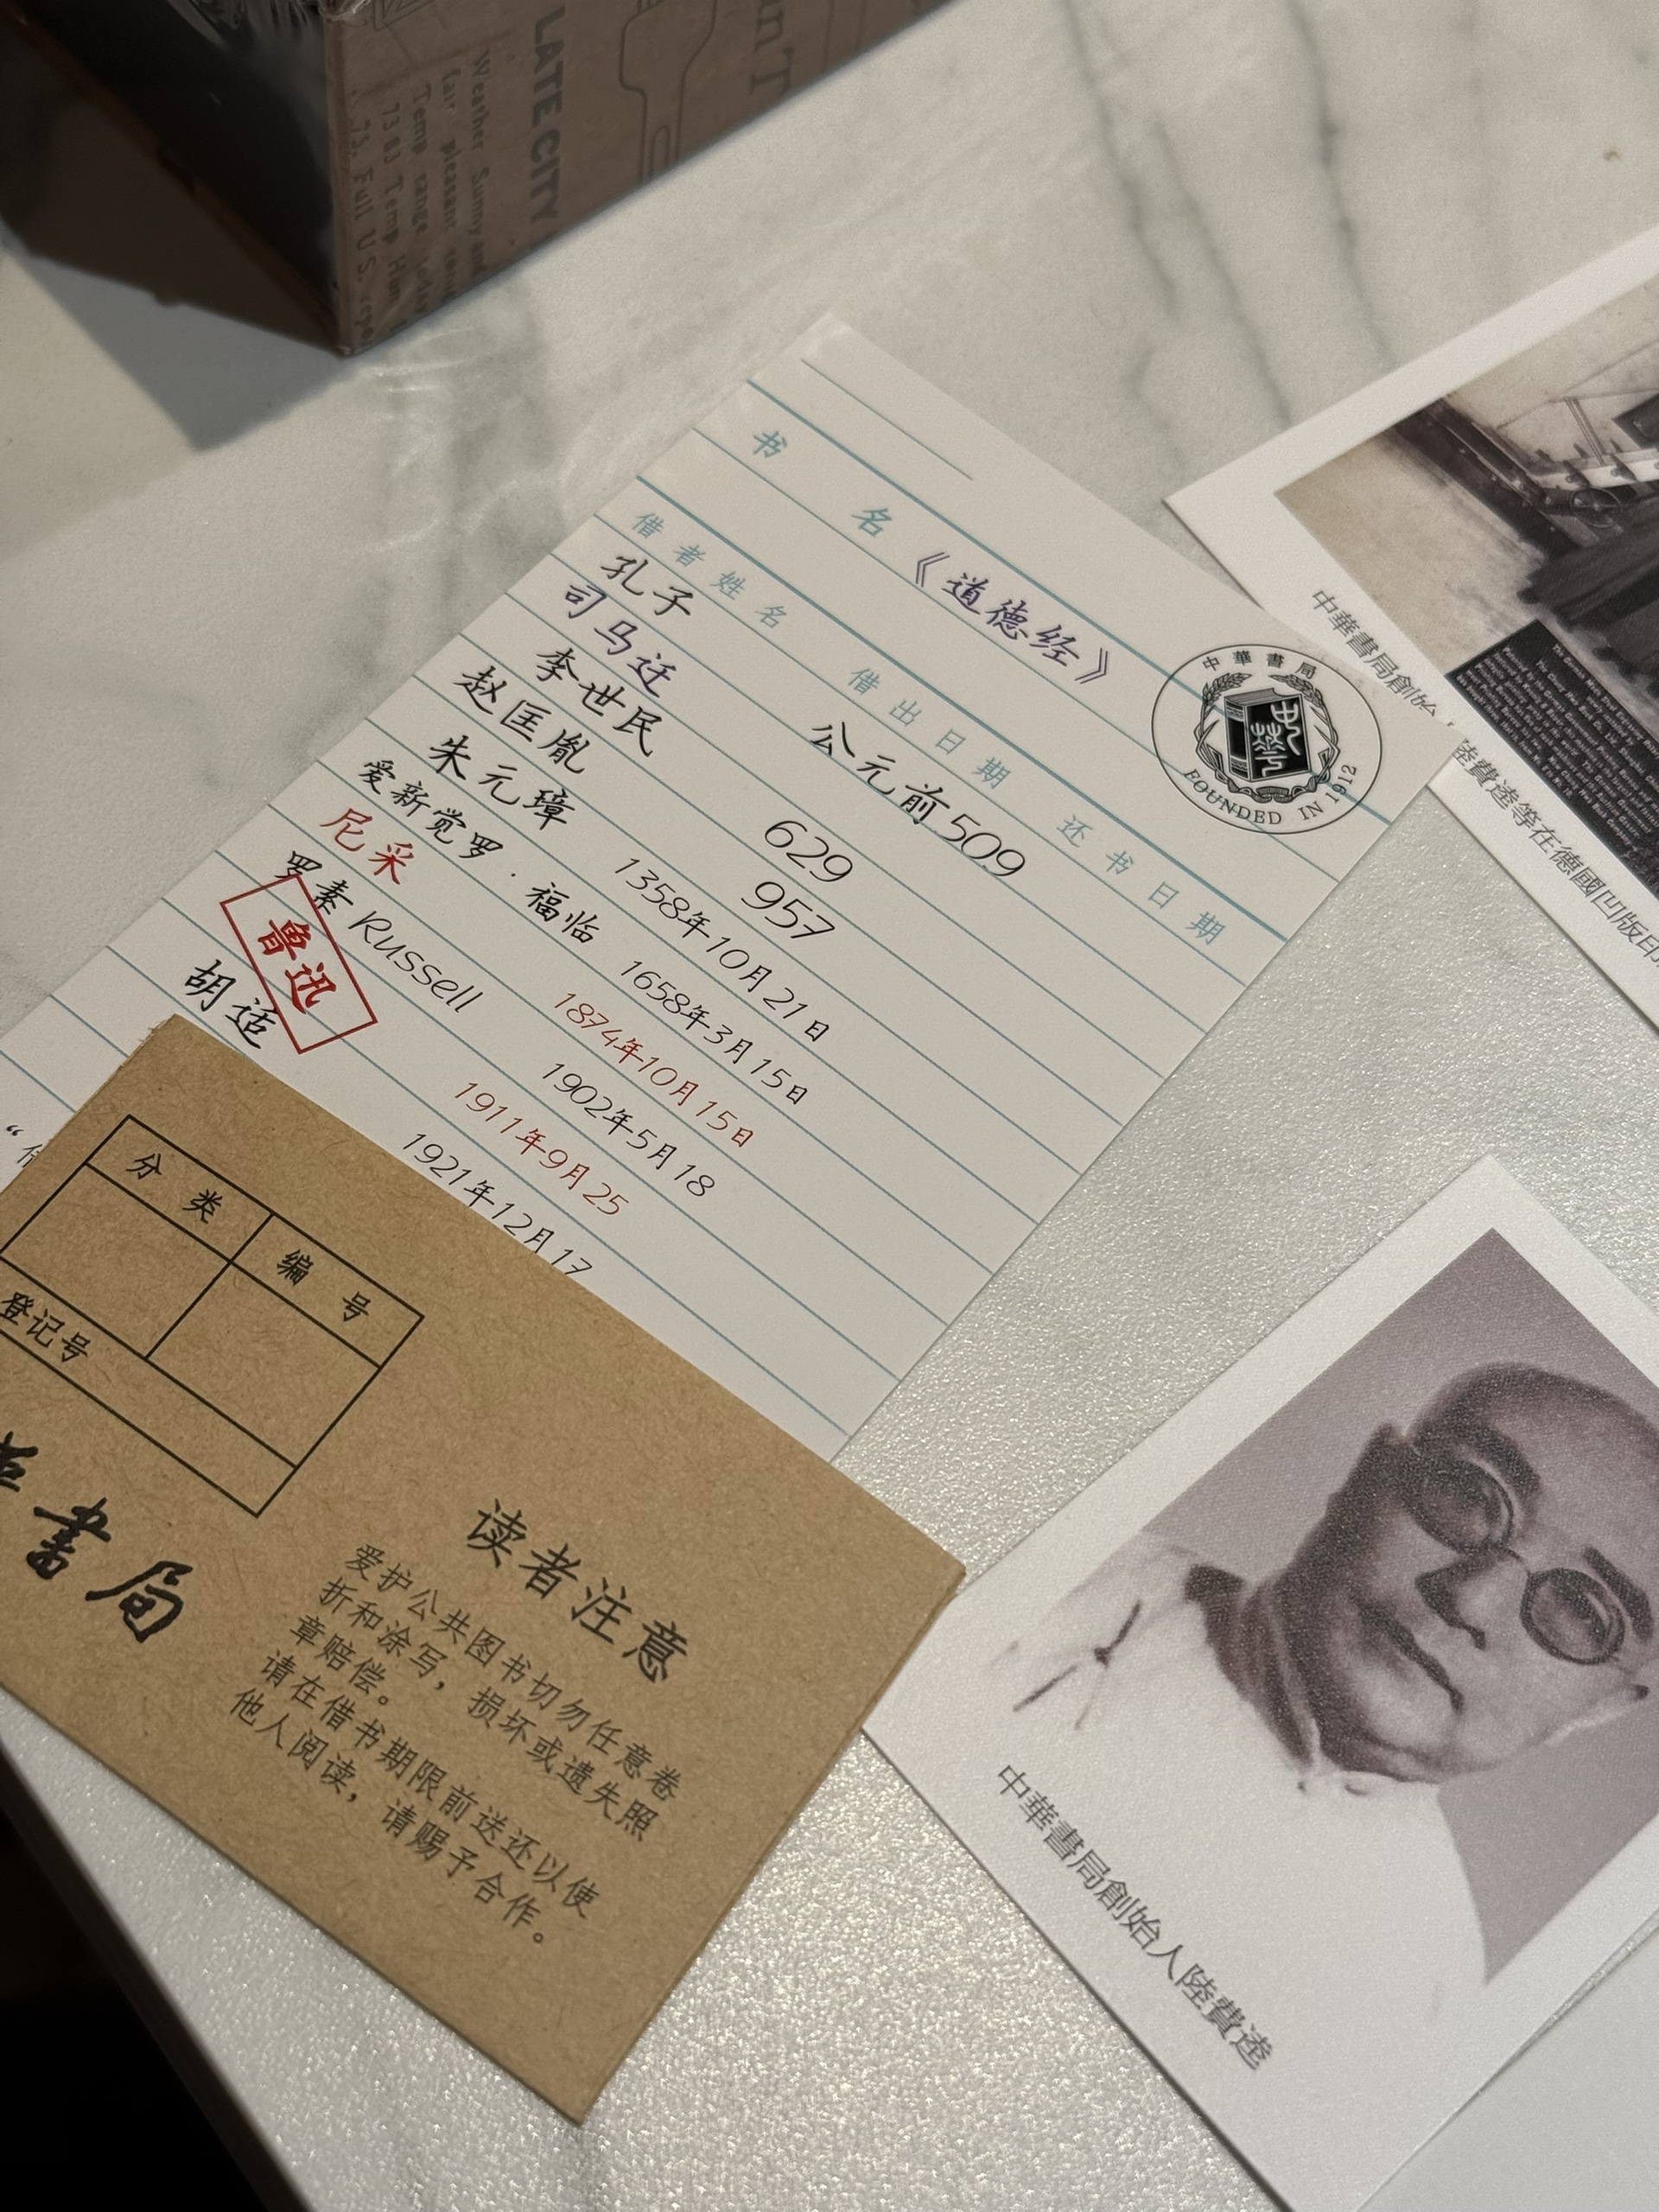 LATE CITY
Weather Sunny and
fair pleasant
Temp range today
73 83 Temp Hum
75. Full U.S.
书 名 《道德经》
中華書局
FOUNDED IN 1912
借者姓名 借出日期 还书日期
孔子 公元前509
司马迁
李世民 629
赵匡胤 957
朱元璋 1358年10月21日
爱新觉罗·福临 1658年3月15日
尼采 1874年10月15日
罗素 Russell 1902年5月18
鲁迅 1911年9月25
胡适 1921年12月17
分类 编号
登记号
書局
读者注意
爱护公共图书切勿任意卷
折和涂写，损坏或遗失照
章赔偿。
请在借书期限前送还以使
他人阅读，请赐予合作。
中華書局創始
陸費逵等在德國凹版印
中華書局創始人陸費逵